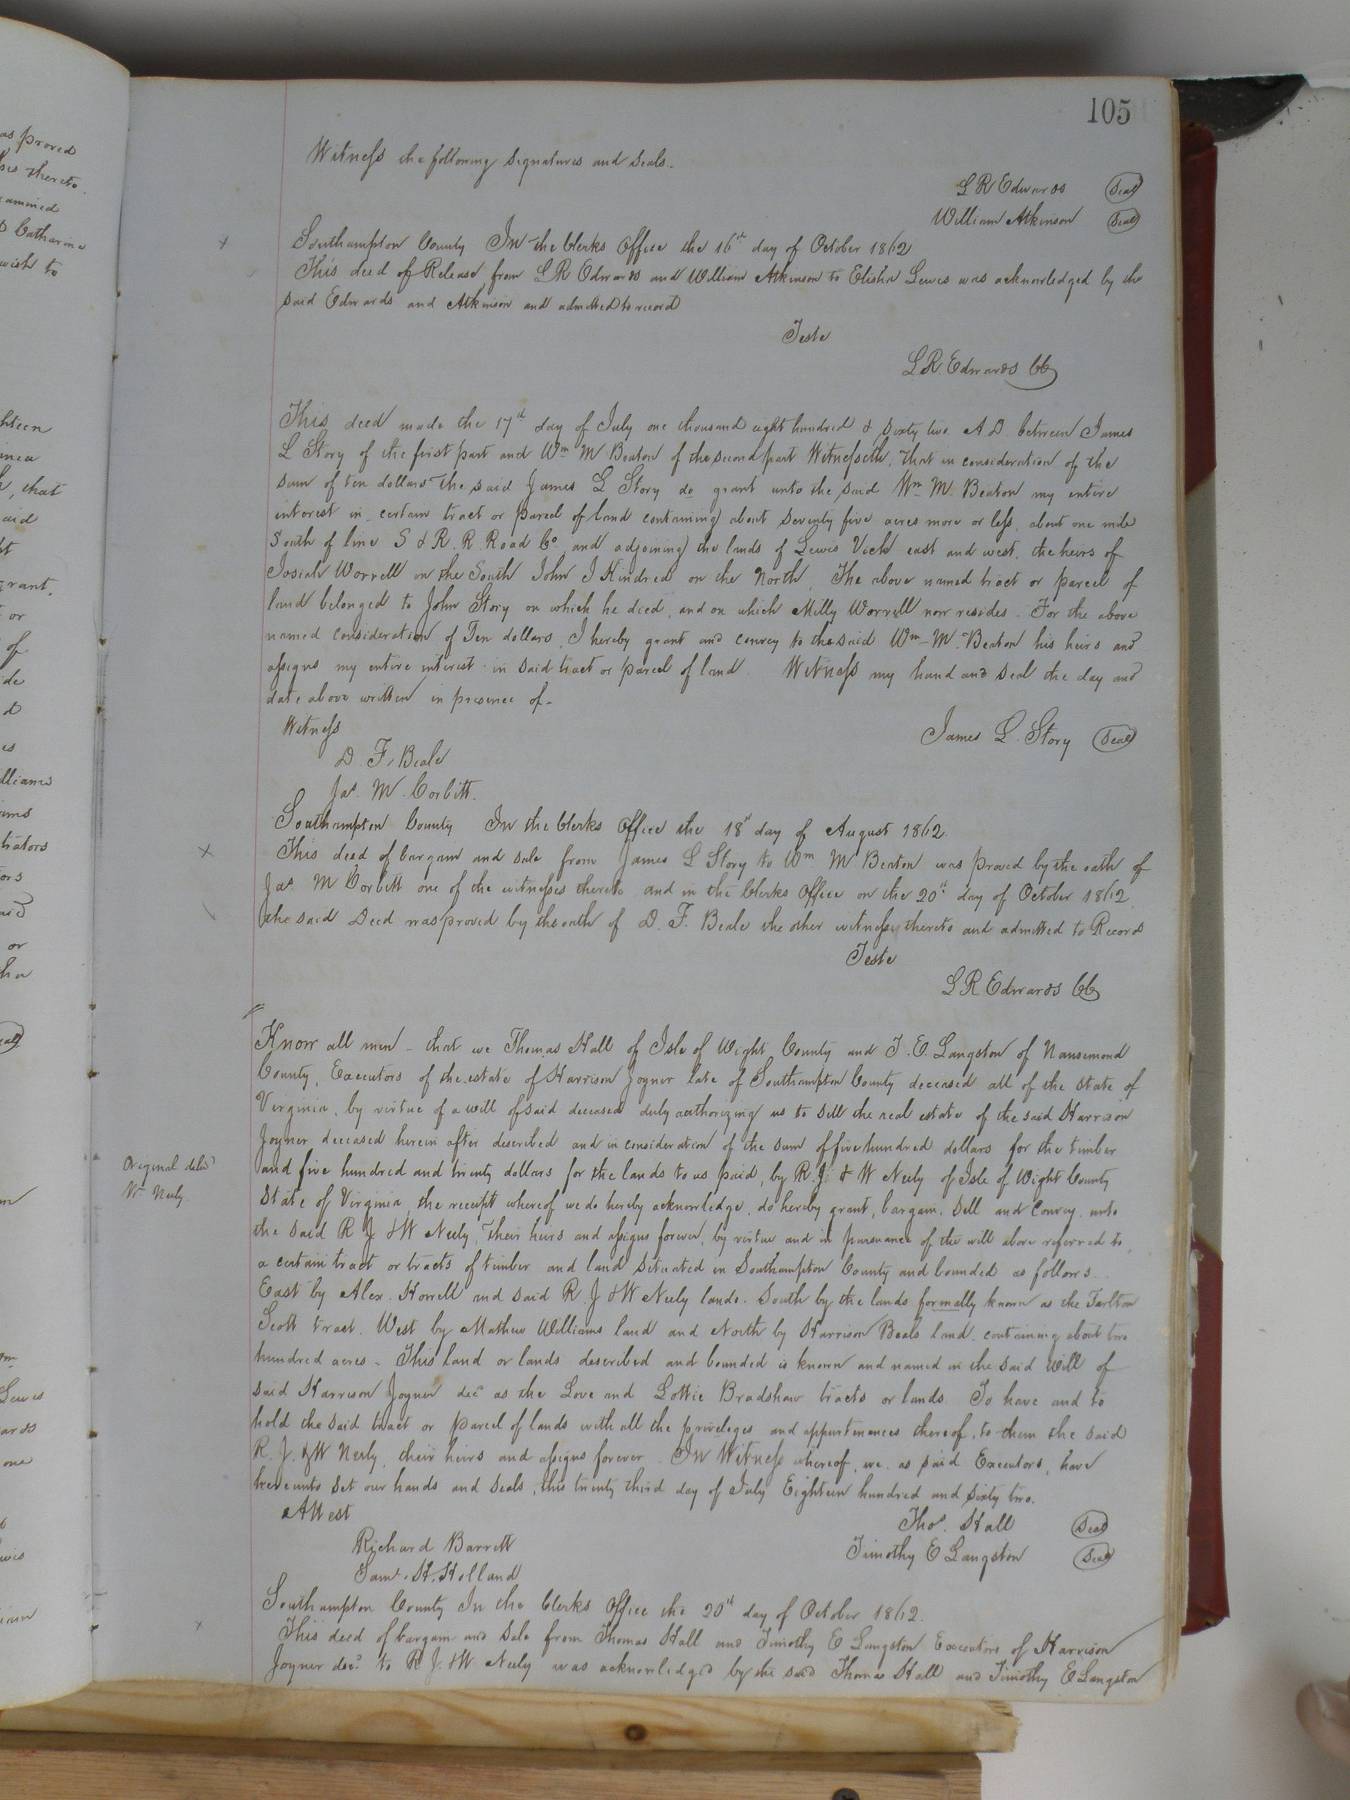 105
Witness the following signatures and seals.
L R Edwards Seal
William Atkinson Seal
Southampton County In the Clerks Office the 16th day of October 1862
This deed of Release from L R Edwards and William Atkinson to Elisha Lewis was acknowledged by the
said Edwards and Atkinson and admitted to record
Teste
L. R. Edwards CC
This deed made the 17th day of July one thousand eight hundred & sixty two A D between James
L Story of the first part and Wm M Beaton of the second part Witnesseth, that in consideration of the
sum of ten dollars the said James L Story do grant unto the said Wm M. Beaton my entire
interest in certain tract or parcel of land containing about seventy five acres more or less, about one mile
South of line S & R. R. Road Co and adjoining the lands of Lewis Vick east and west, the heirs of
Josiah Worrell on the South John J Kindred on the North. The above named tract or parcel of
land belonged to John Story on which he died, and on which Milly Worrell now resides. For the above
named consideration of Ten dollars, I hereby grant and convey to the said Wm M. Beaton his heirs and
assigns my entire interest in said tract or parcel of land Witness my hand and seal the day and
date above written in presence of.
Witness
James L. Story Seal
D. F. Beale
Jas. M. Corbitt.
Southampton County In the Clerks Office the 18th day of August 1862.
This deed of bargain and sale from James L Story to Wm M Beaton was proved by the oath of
Jas M Corbitt one of the witnesses thereto and in the Clerks Office on the 20th day of October 1862
the said Deed was proved by the oath of D. F. Beale the other witness thereto and admitted to Record
Teste
L R Edwards CC
Know all men - that we Thomas Hall of Isle of Wight County and T. E. Langston of Nansemond
County, Executors of the estate of Harrison Joyner late of Southampton County deceased all of the State of
Virginia, by virtue of a will of said deceased duly authorizing us to sell the real estate of the said Harrison
Joyner deceased herein after described and in consideration of the sum of five hundred dollars for the timber
and five hundred and twenty dollars for the lands to us paid, by R. J. & W Neely of Isle of Wight County
State of Virginia, the receipt whereof we do hereby acknowledge, do hereby grant, bargain, sell and convey unto
the said R J & W Neely, their heirs and assigns forever, by virtue and in pursuance of the will above referred to,
a certain tract or tracts of timber and land situated in Southampton County and bounded as follows
East by Alex. Howell and said R. J & W Neely lands. South by the lands formally known as the Tarlton
Scott tract. West by Mathew Williams land and North by Harrison Beals land containing about two
hundred acres - This land or lands described and bounded is known and named in the said will of
said Harrison Joyner decd as the Love and Lottie Bradshaw tracts or lands. To have and to
hold the said tract or parcel of lands with all the priveleges and appurtenances thereof, to them the said
R. J. & W Neely, their heirs and assigns forever. In Witness whereof, we as said Executors, have
hereunto set our hands and seals, this twenty third day of July Eighteen hundred and sixty two.
Original deld
W Neely.
Attest
Thos. Hall Seal
Richard Barrett
Timothy E Langston Seal
Saml. H. Holland
Southampton County In the Clerks Office the 20th day of October 1862.
This deed of bargain and sale from Thomas Hall and Timothy E Langston Executors of Harrison
Joyner decd to R J. & W Neely was acknowledged by the said Thomas Hall and Timothy E Langston